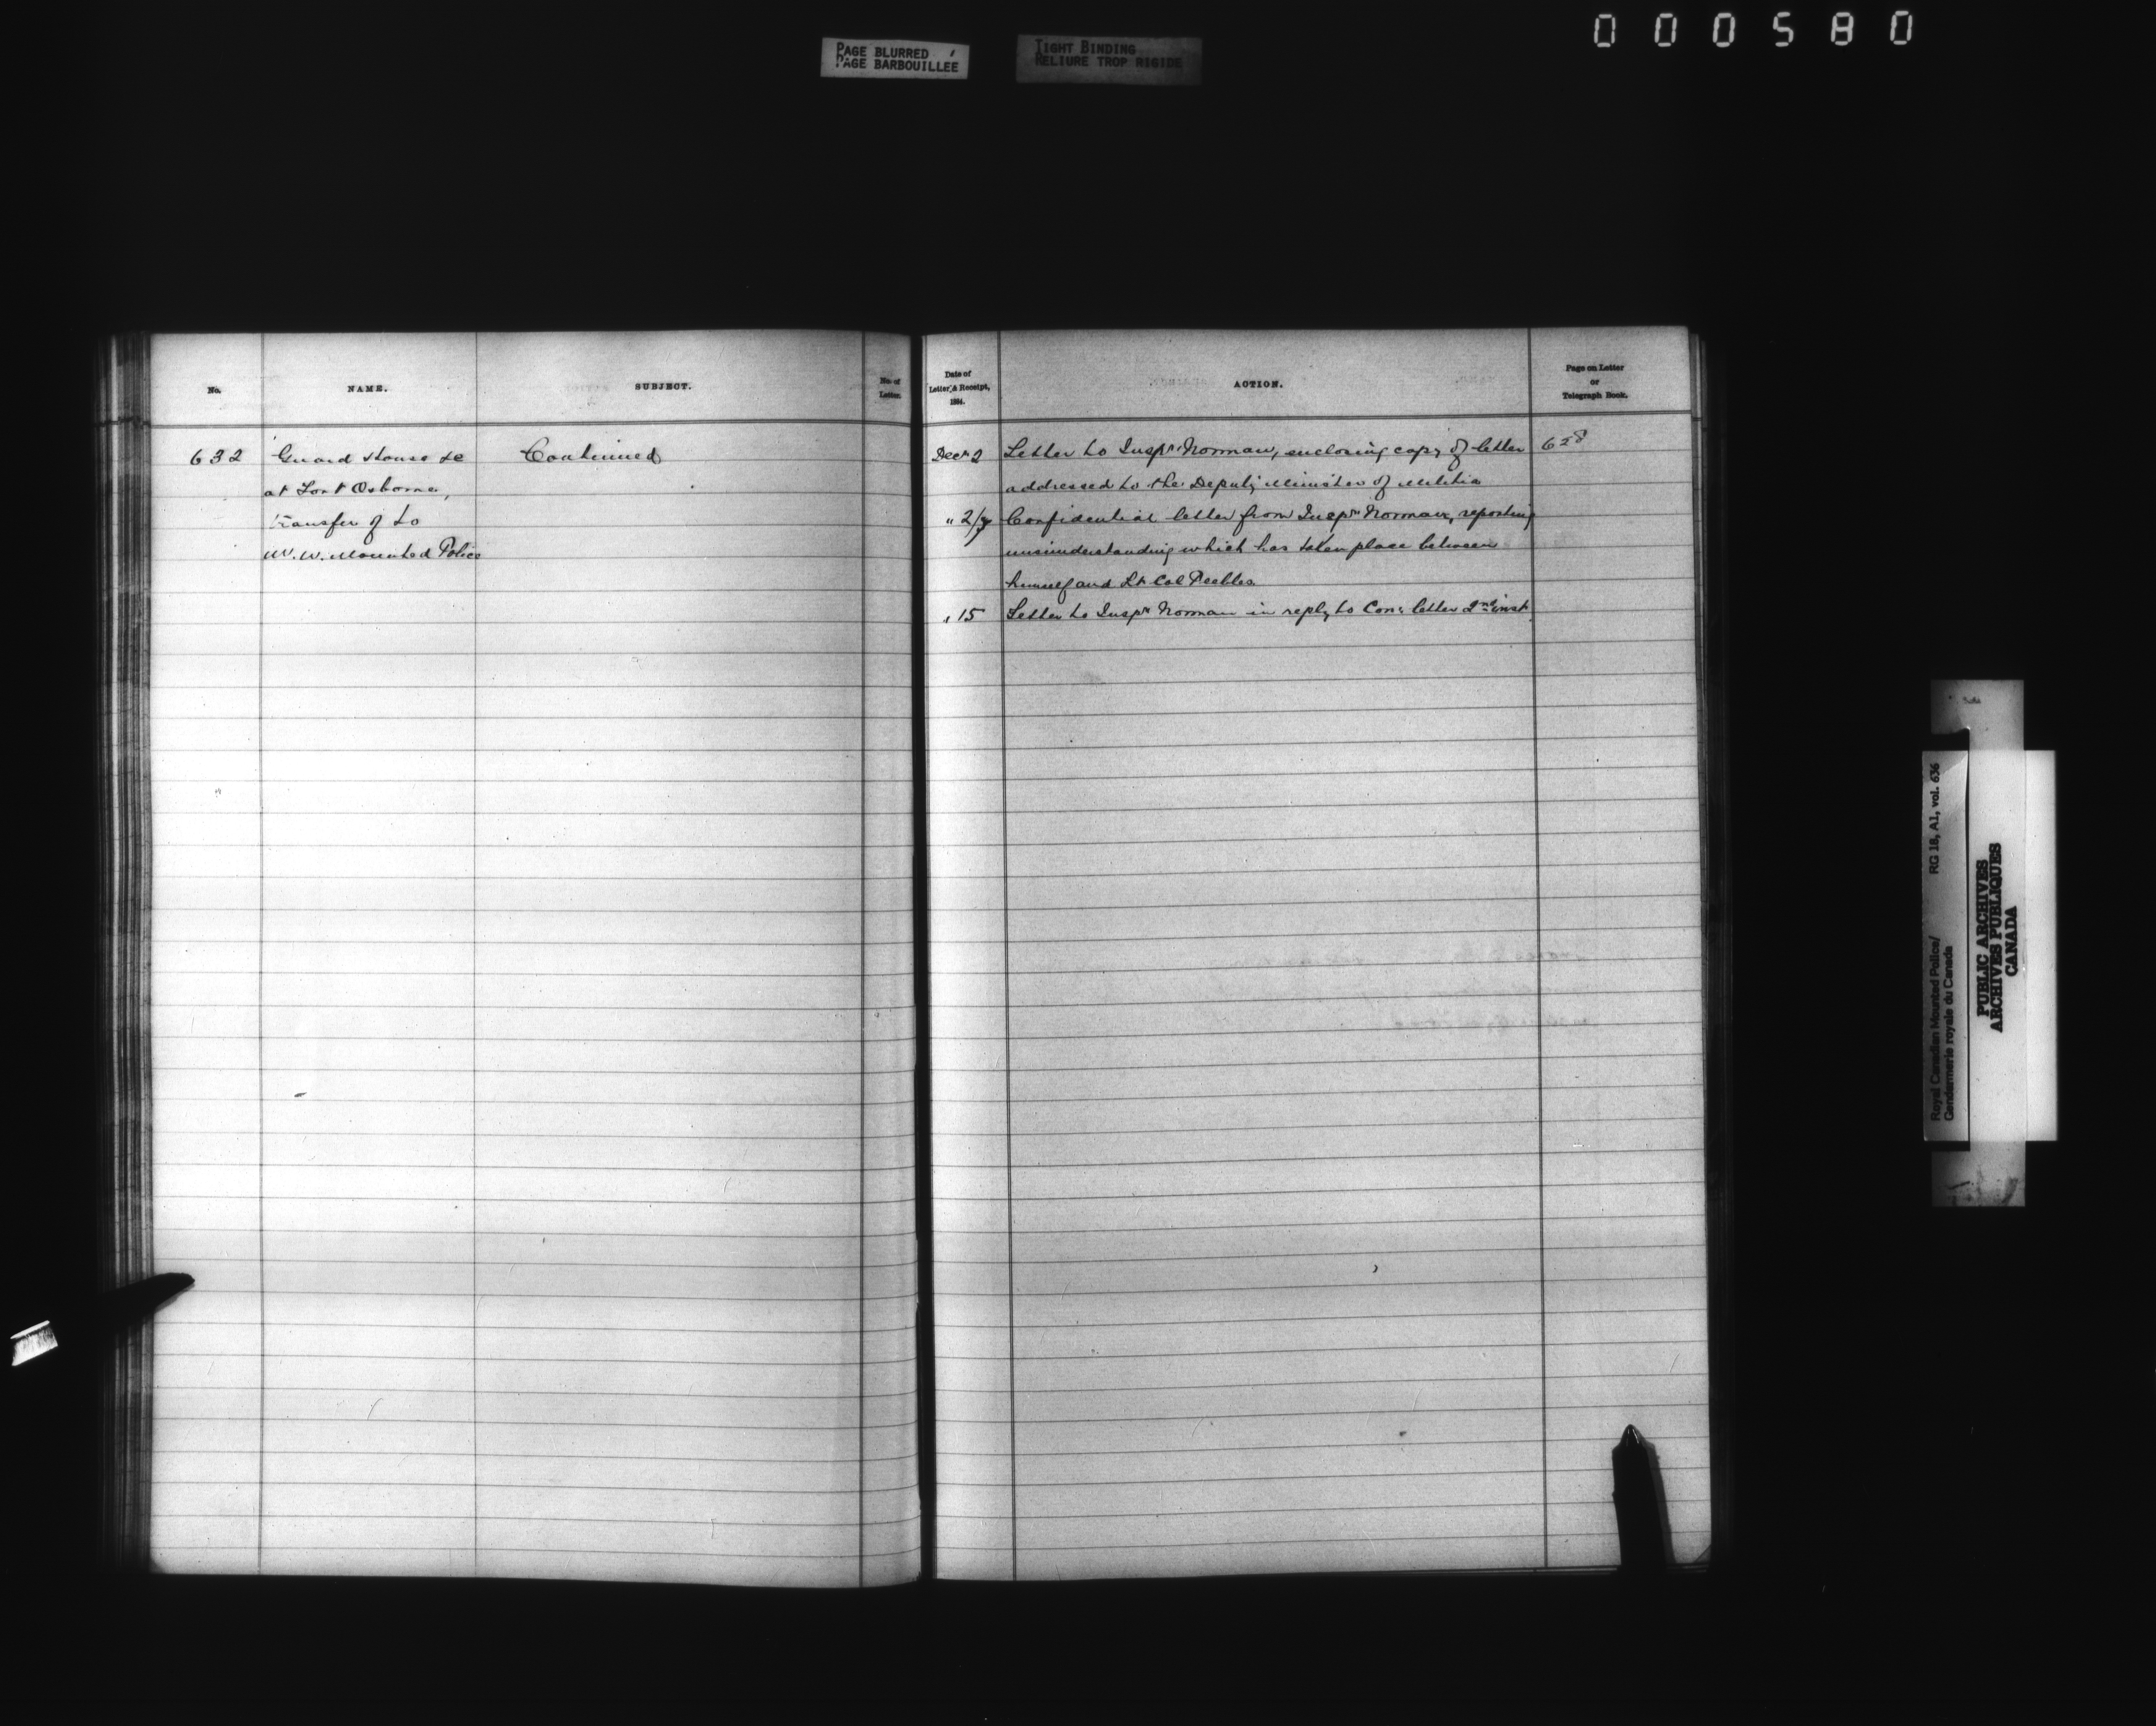 000580
PAGE BLURRED
PAGE BARBOUILLÉE
TIGHT BINDING
RELIURE TROP RIGIDE
No.
NAME.
SUBJECT.
No. of
Letter.
632
Guard House &c
at Fort Osborne,
transfer of to
N. W. Mounted Police
Continued
Date of
Letter & Receipt,
1884.
ACTION.
Page on Letter
or
Telegraph Book.
Decr 2
Letter to Inspr Norman, enclosing copy of letter
628
addressed to the Deputy Minister of Militia
" 2/7
Confidential letter from Inspr Norman, reporting
misunderstanding which has taken place between
himself and Lt Col Peebles
" 15
Letter to Inspr Norman in reply to Con: letter 2nd inst.
Royal Canadian Mounted Police/
Gendarmerie royale du Canada
RG 18, A1, vol. 636
PUBLIC ARCHIVES
ARCHIVES PUBLIQUES
CANADA